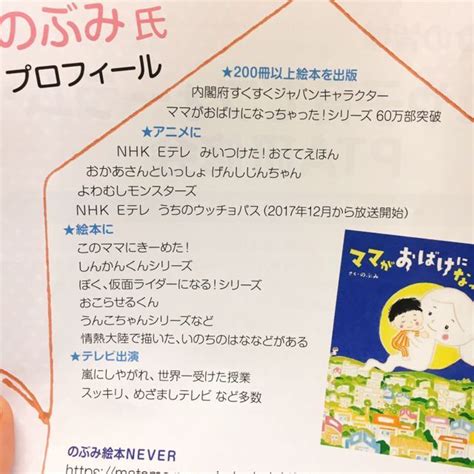 のぶみ 氏
プロフィール
★200冊以上絵本を出版
内閣府すくすくジャパンキャラクター
ママがおばけになっちゃった!シリーズ 60万部突破
★アニメに
NHK Eテレ みいつけた!おててえほん
おかあさんといっしょ げんしじんちゃん
よわむしモンスターズ
NHK Eテレ うちのウッチョパス(2017年12月から放送開始)
★絵本に
このママにきーめた!
しんかんくんシリーズ
ぼく、仮面ライダーになる!シリーズ
おこらせるくん
うんこちゃんシリーズなど
情熱大陸で描いた、いのちのはななどがある
★テレビ出演
嵐にしやがれ、世界一受けた授業
スッキリ、めざましテレビ など多数
ママがおばけに
さく・のぶみ
のぶみ絵本NEVER